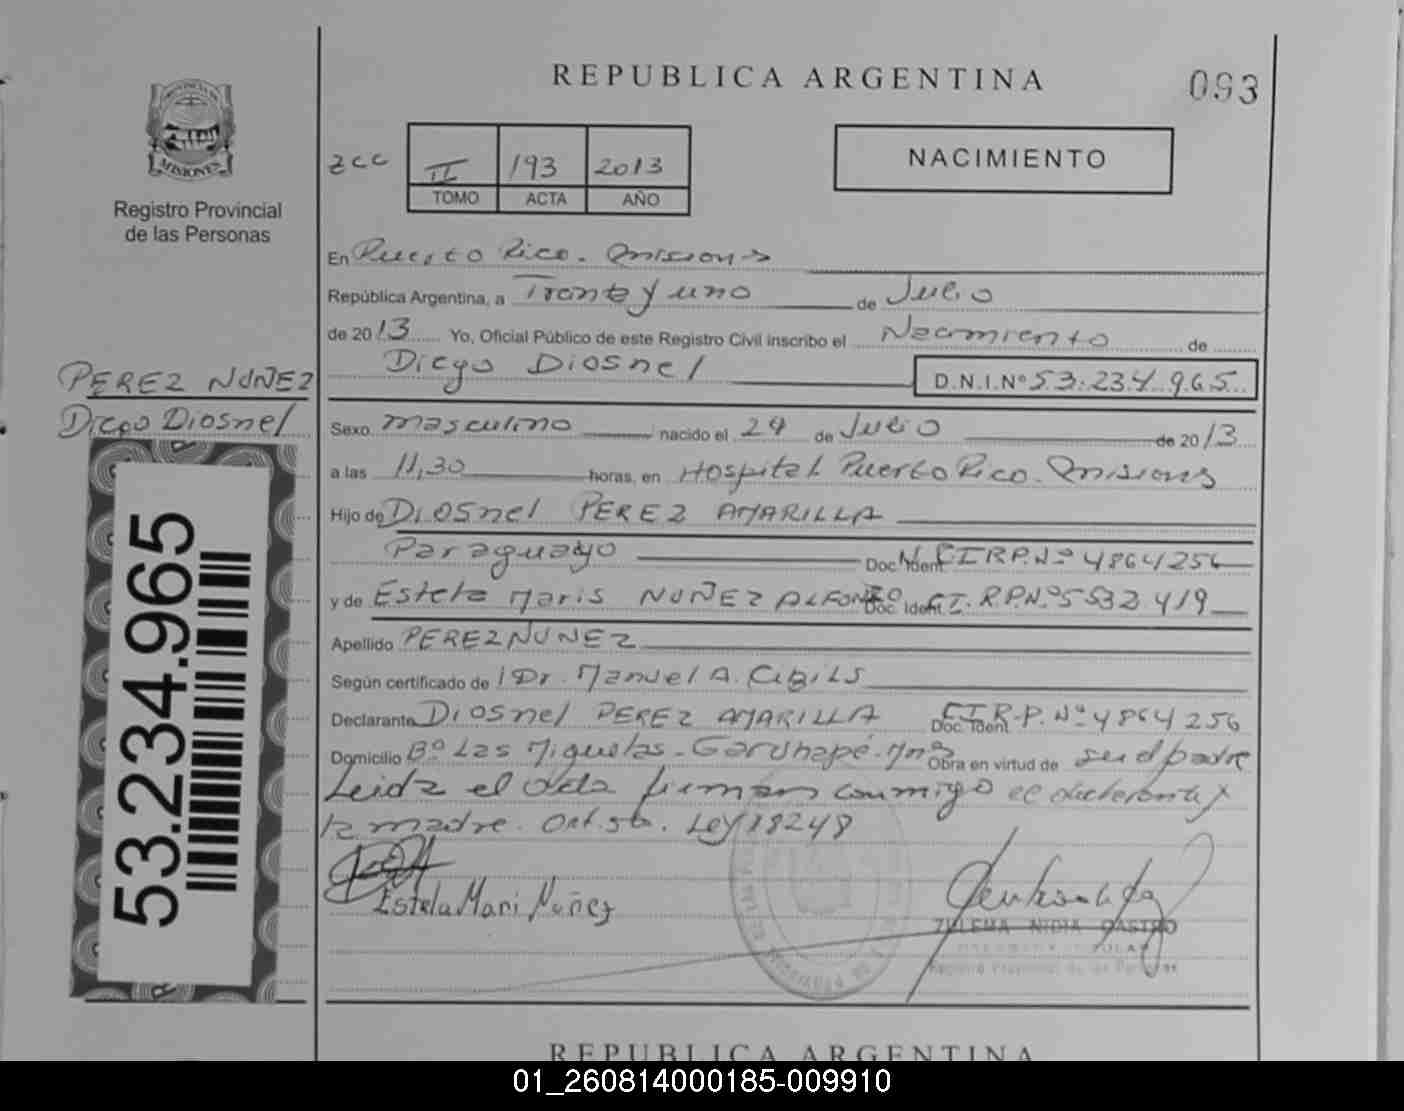 REPUBLICA ARGENTINA
093
PROVINCIA DE
MISIONES
Registro Provincial
de las Personas
zcc II 193 2013
TOMO ACTA AÑO
NACIMIENTO
En Puerto Rico. Misiones
República Argentina, a Treinta y uno de Julio
de 2013 Yo, Oficial Público de este Registro Civil inscribo el Nacimiento de
Diego Diosnel D.N.I.Nº 53.234.965
PEREZ NUÑEZ
Diego Diosnel
53.234.965
Sexo masculino nacido el 24 de Julio de 2013
a las 11,30 horas, en Hospital Puerto Rico. Misiones
Hijo de Diosnel PEREZ AMARILLA
Paraguayo Doc. Ident. C.I.R.P.Nº 4864256
y de Estela Maris NUÑEZ ALFONZO Doc. Ident. C.I.R.P.Nº 5532419
Apellido PEREZ NUNEZ
Según certificado de Dr. Manuel A. Cibils
Declarante Diosnel PEREZ AMARILLA Doc. Ident. C.I.R.P. Nº 4864256
Domicilio Bº Las Miguelas - Garuhapé - Mnes Obra en virtud de ser el padre
Leida el acta firman conmigo el declarante y
la madre. Ley 18248
Estela Mari Nuñez
ZULEMA NIDIA CASTRO
Registro Provincial de las Personas
REPUBLICA ARGENTINA
01_260814000185-009910